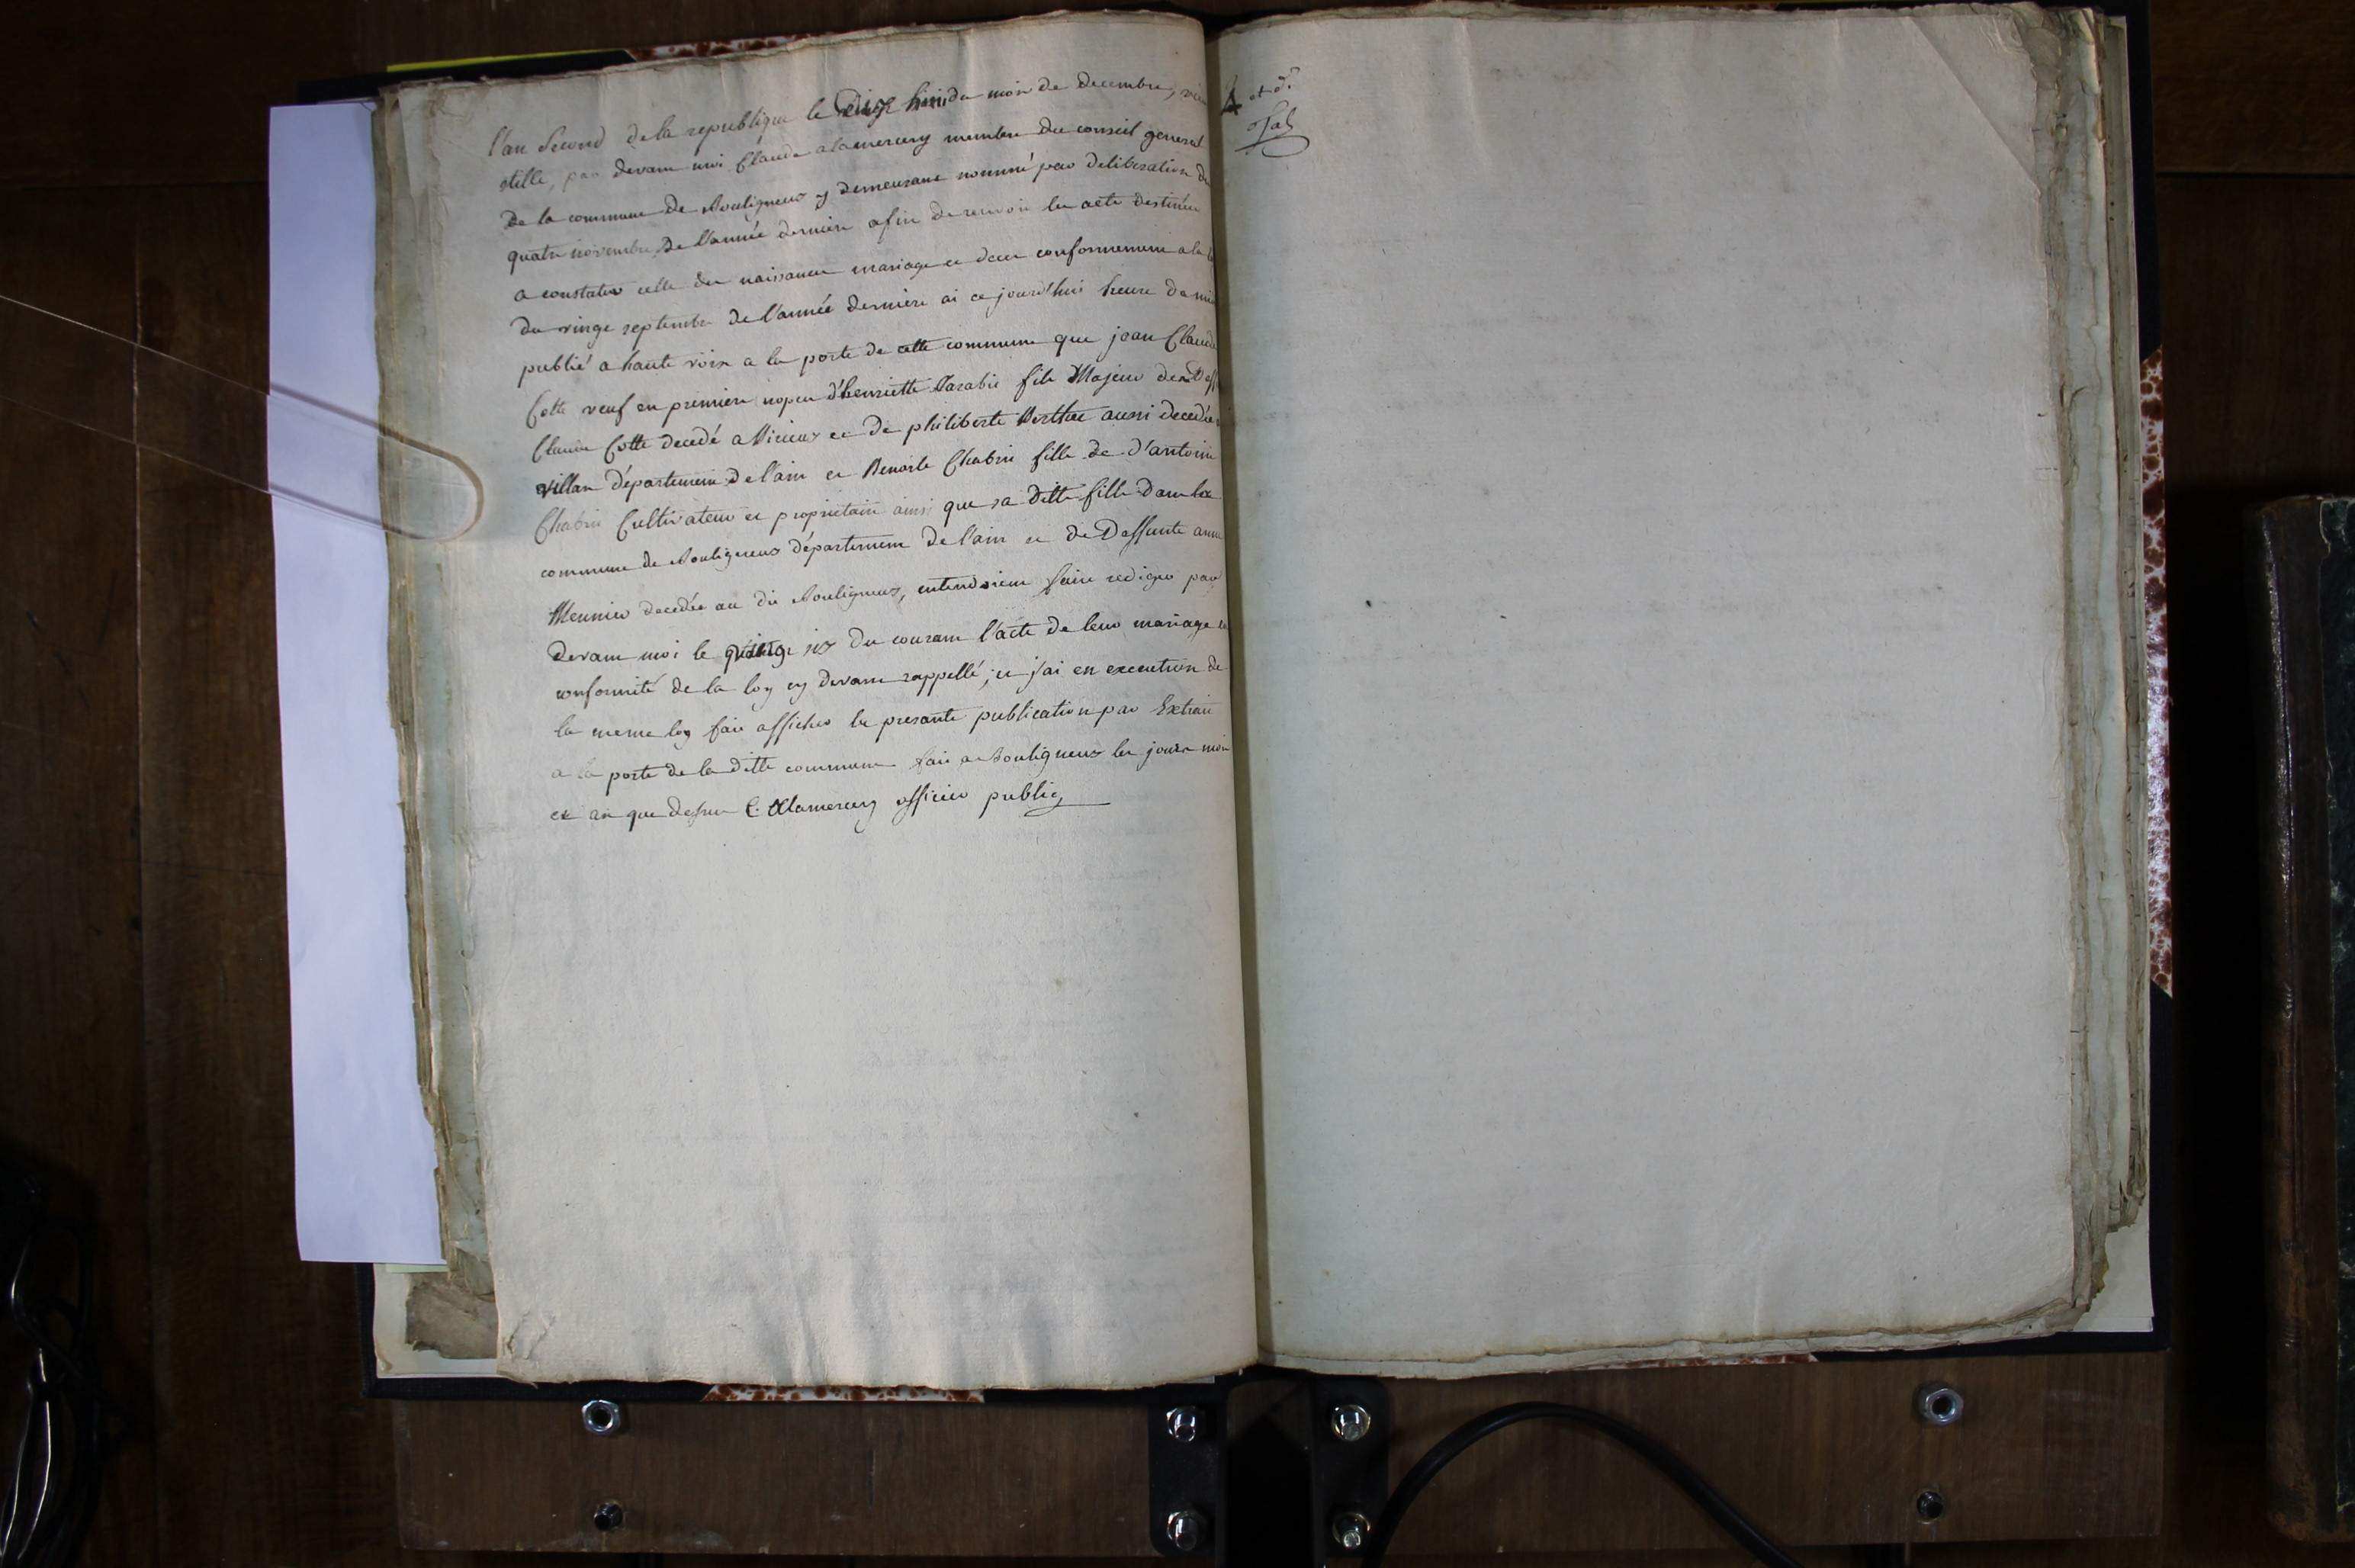 l'an second de la republique le dix huit du mois de decembre, vieu
stille, par devant moi Claude alamercery membre du conseil general
de la commune de Bouligneux y demeurant nommé par deliberation du
quatre novembre de l'année derniere afin de recevoir les acte destinées
a constater celle des naissance mariage et deces conformement a la
du vingt septembre de l'année derniere ai ce jourd'hui heure de midi
publié a haute voix a la porte de cette commune que jean Claude
Cotte veuf en premiere nopce d'henriette fils Majeur de
Claude Cotte decedé a et de philiberte Berthet aussi decedée
villar département de l'ain et Benoite Chabrie fille de d'antoine
Chabrie Cultivateur et proprietaire ainsi que sa ditte fille dans la
commune de Bouligneux département de l'ain et de Deffunte anne
Meunier decedée au dit Bouligneux, entendoient faire rediger par
devant moi le vingt six du courant l'acte de leur mariage en
conformité de la loy cy devant rappellé ; et j'ai en execution de
la meme loy fait afficher la presante publication par Extrait
a la porte de la ditte commune fait a Bouligneux les jours mois
et an que dessus C. Alamercery officier public
4 et d.